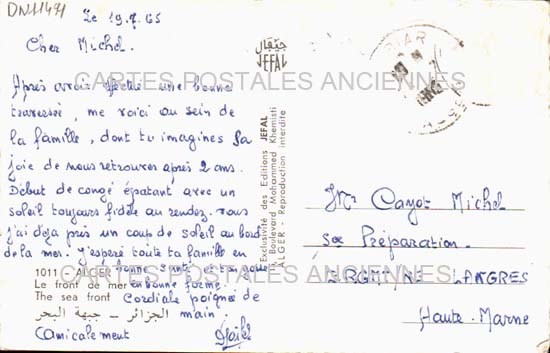 DN41471
Le 19.7.65
Cher Michel.
Après avoir effectué une bonne
traversée, me voici au sein de
la famille, dont tu imagines la
joie de nous retrouver après 2 ans.
Début de congé épatant avec un
soleil toujours fidèle au rendez-vous
j'ai déjà pris un coup de soleil au bord
de la mer. J'espère toute ta famille en
bonne santé et toi aussi
en bonne forme.
Cordiale poignée de
main.
Amicalement
CARTES POSTALES ANCIENNES
CARTES POSTALES ANCIENNES
1011 - ALGER
Le front de mer
The sea front
الجزائر – جبهة البحر
جيفال
JEFAL
Exclusivité des Editions JEFAL
11, Boulevard Mohammed Khemisti
ALGER - Reproduction interdite
Mr Cayot Michel
Préparation.
LANGRES
Haute-Marne